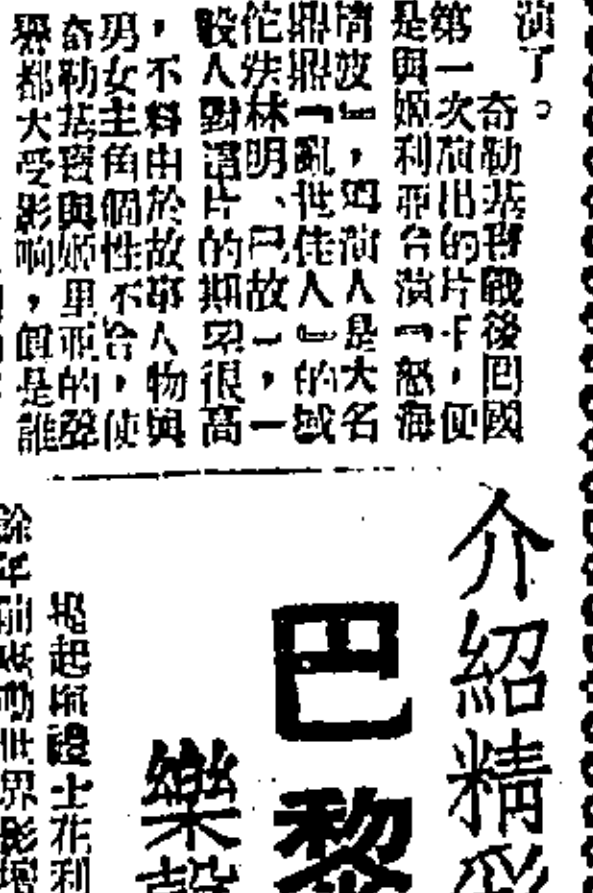 演了。
奇勒基寶戰後囘國
第一次演出的片子，便
是與姬利亞合演『怒海
情波』，始演人是大名
鼎鼎『亂世佳人』的域
佗法林明、已故一，一
般人對這片的期望很高
，不料由於故事人物與
男女主角個性不合，使
奇勒基寶與姬里亞的聲
譽都大受影响，但是誰
介紹精彩
巴黎
樂
起 禮士花利
餘年前 動世界影壇